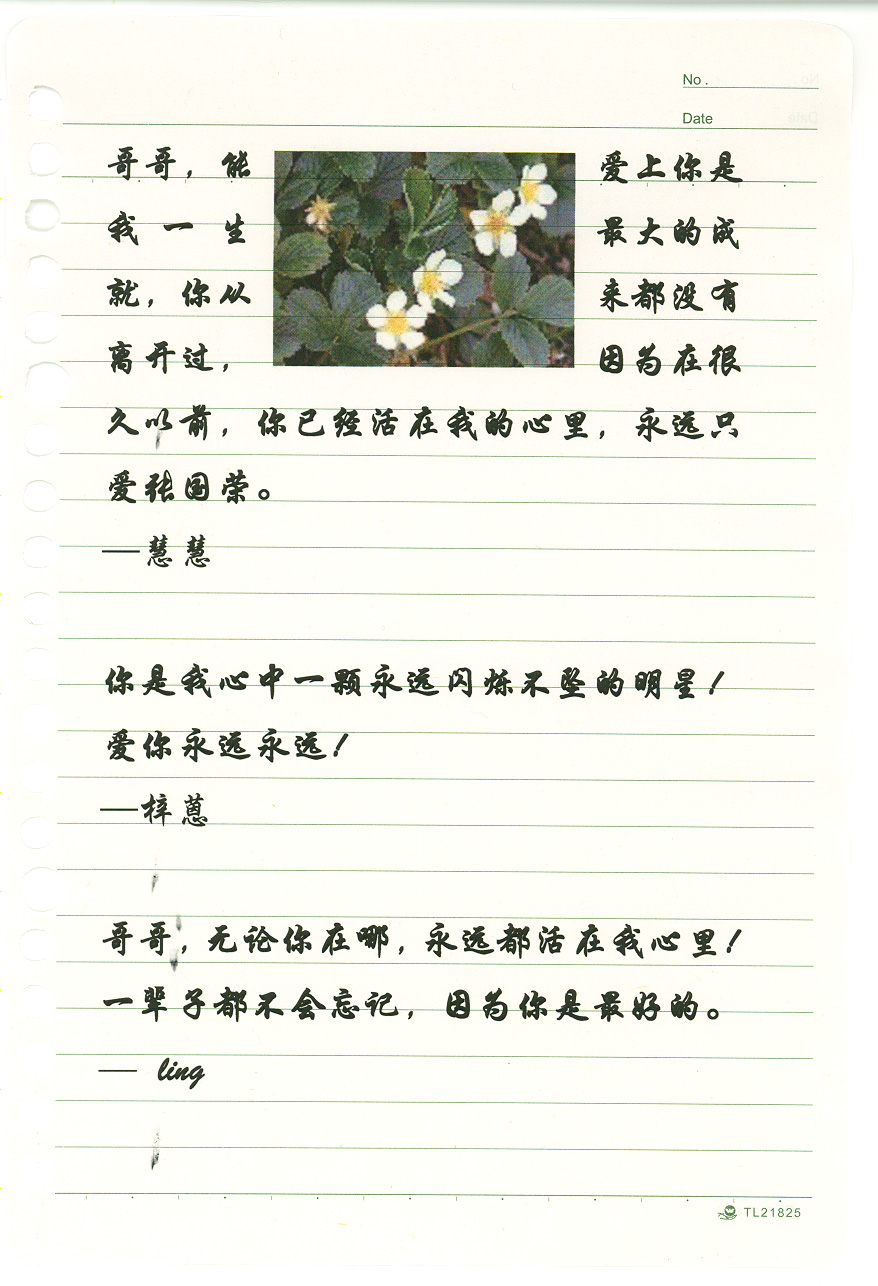 No .
Date
哥哥，能爱上你是
我一生最大的成
就，你从来都没有
离开过，因为在很
久以前，你已经活在我的心里，永远只
爱张国荣。
—慧慧
你是我心中一颗永远闪烁不坠的明星！
爱你永远永远！
—梓蒽
哥哥，无论你在哪，永远都活在我心里！
一辈子都不会忘记，因为你是最好的。
— ling
TL21825